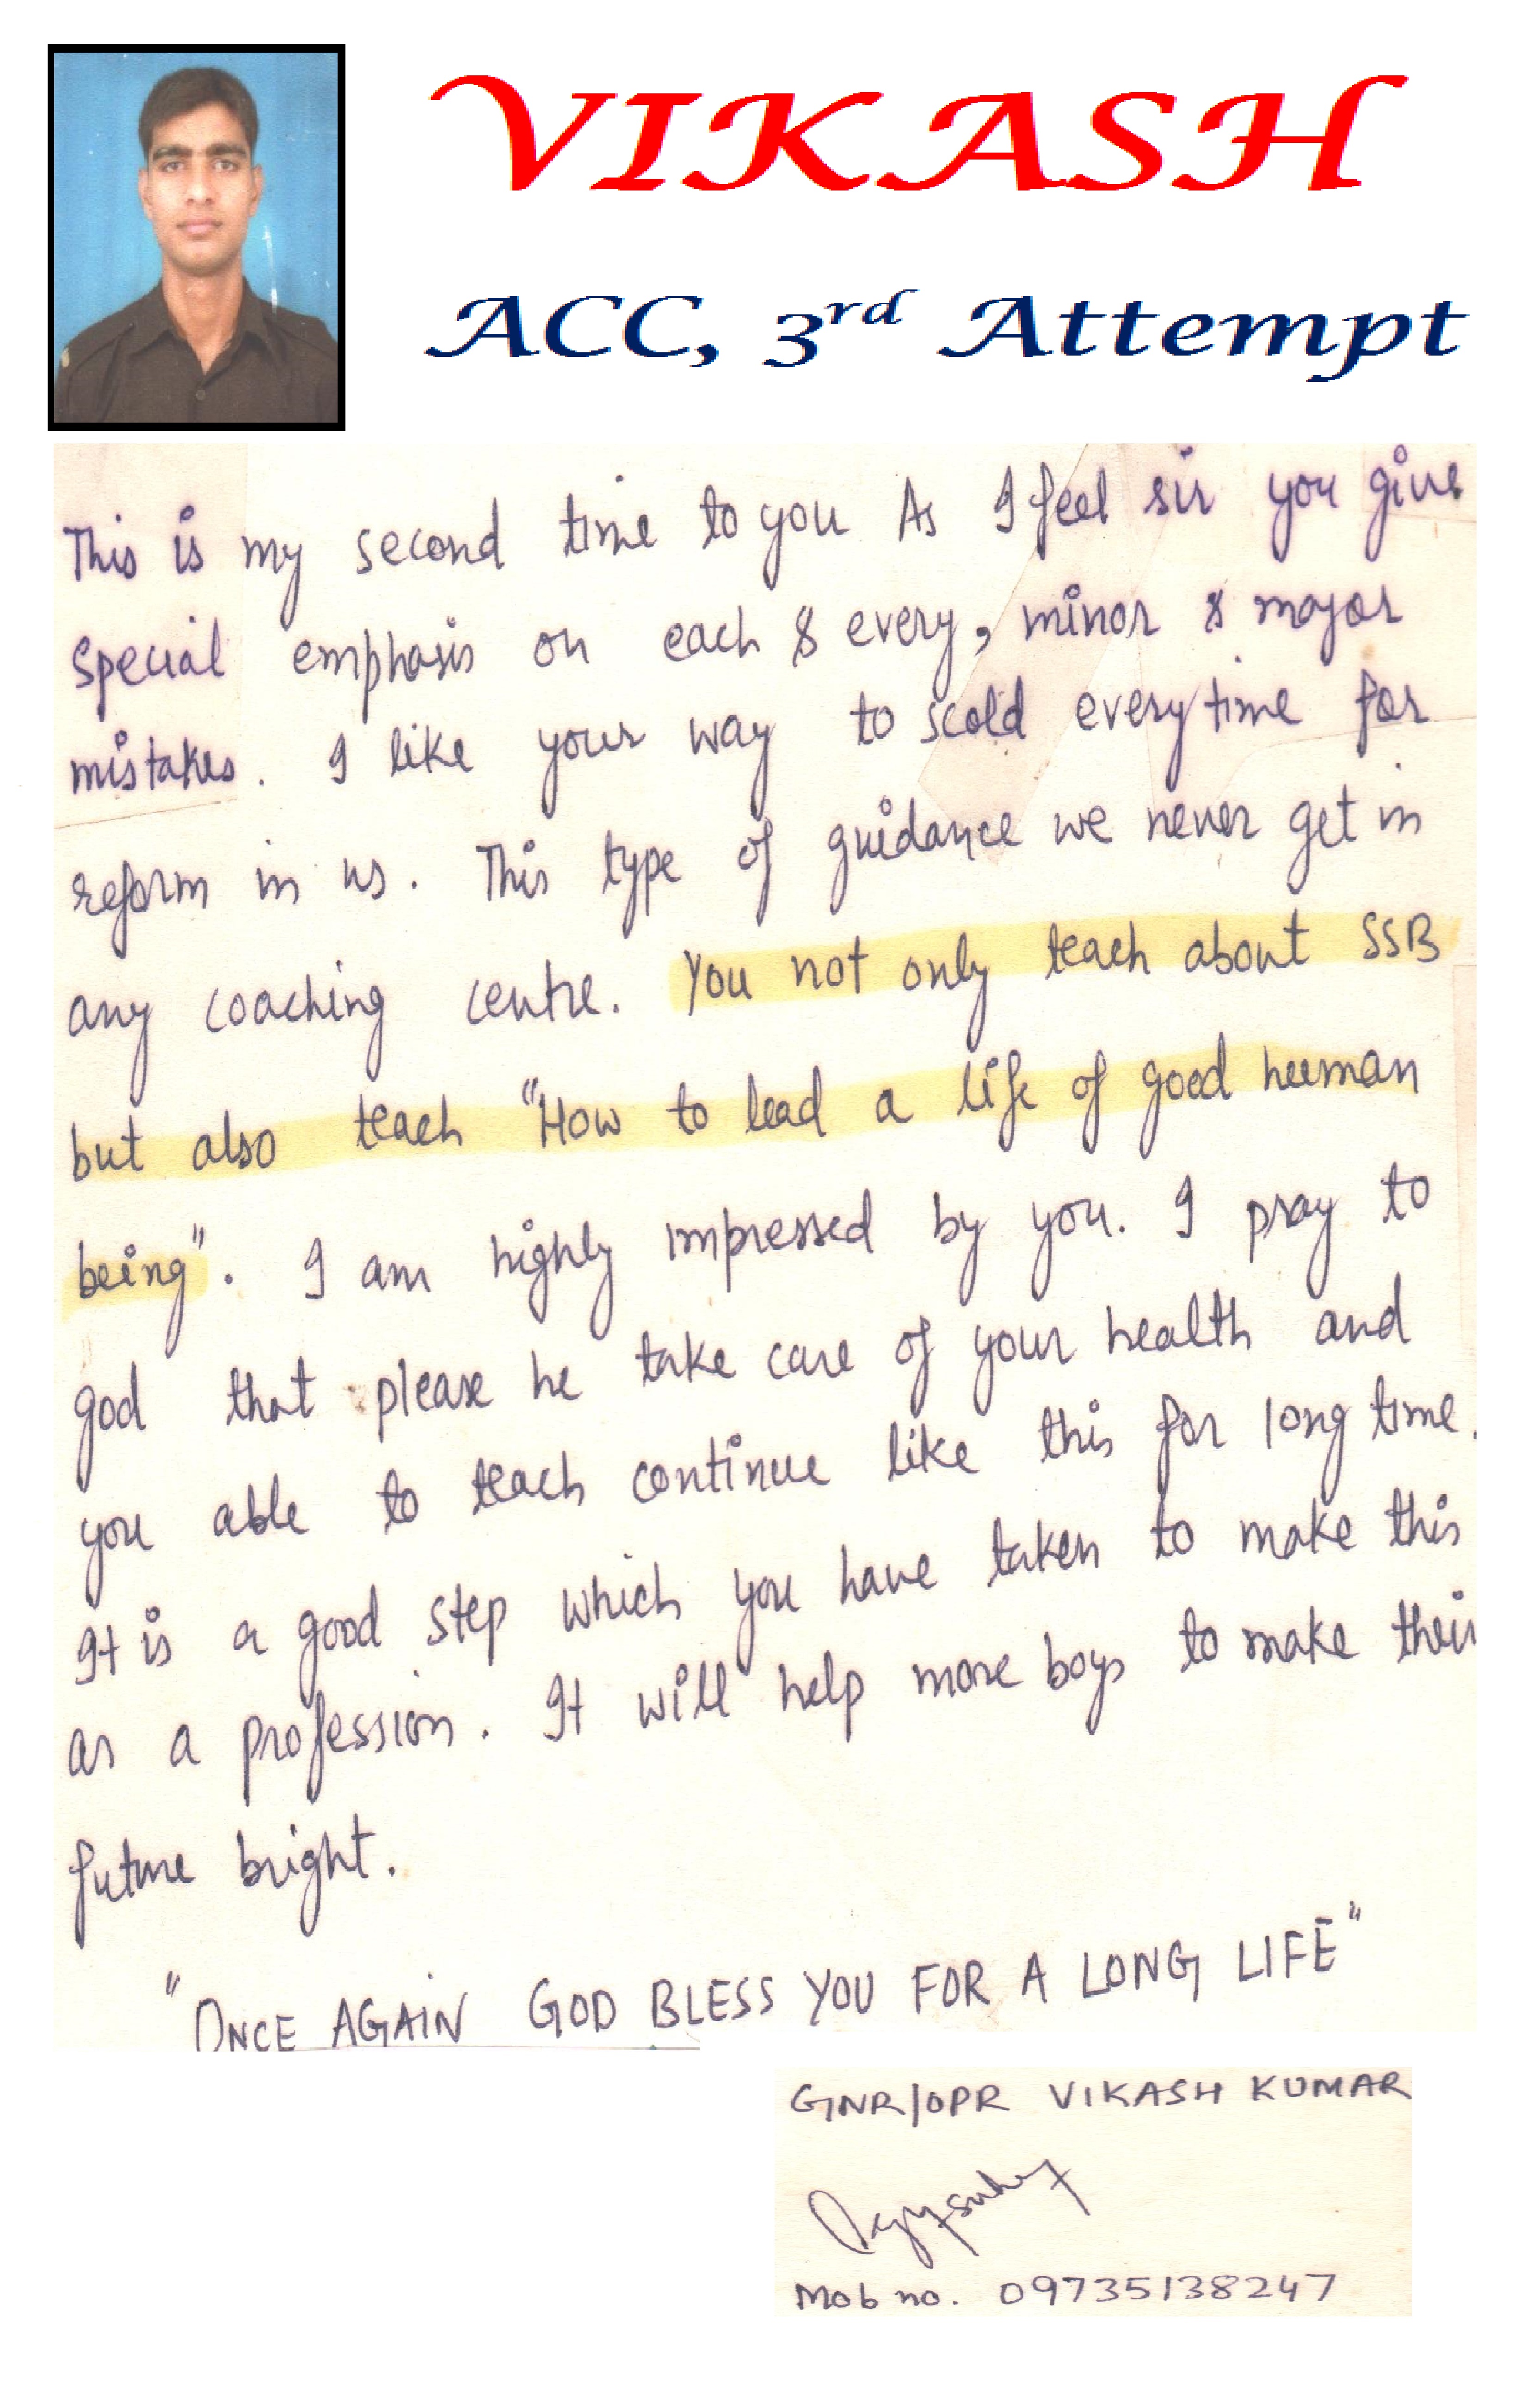 VIKASH
ACC, 3rd Attempt
This is my second time to you As I feel sir you give
special emphasis on each & every, minor & major
mistakes. I like your way to scold everytime for
reform in us. This type of guidance we never get in
any coaching centre. You not only teach about SSB
but also teach "How to lead a life of good human
being". I am highly impressed by you. I pray to
god that please he take care of your health and
you able to teach continue like this for long time.
It is a good step which you have taken to make this
as a profession. It will help more boys to make their
future bright.
"ONCE AGAIN GOD BLESS YOU FOR A LONG LIFE"
GNR/OPR VIKASH KUMAR
Mob no. 09735138247